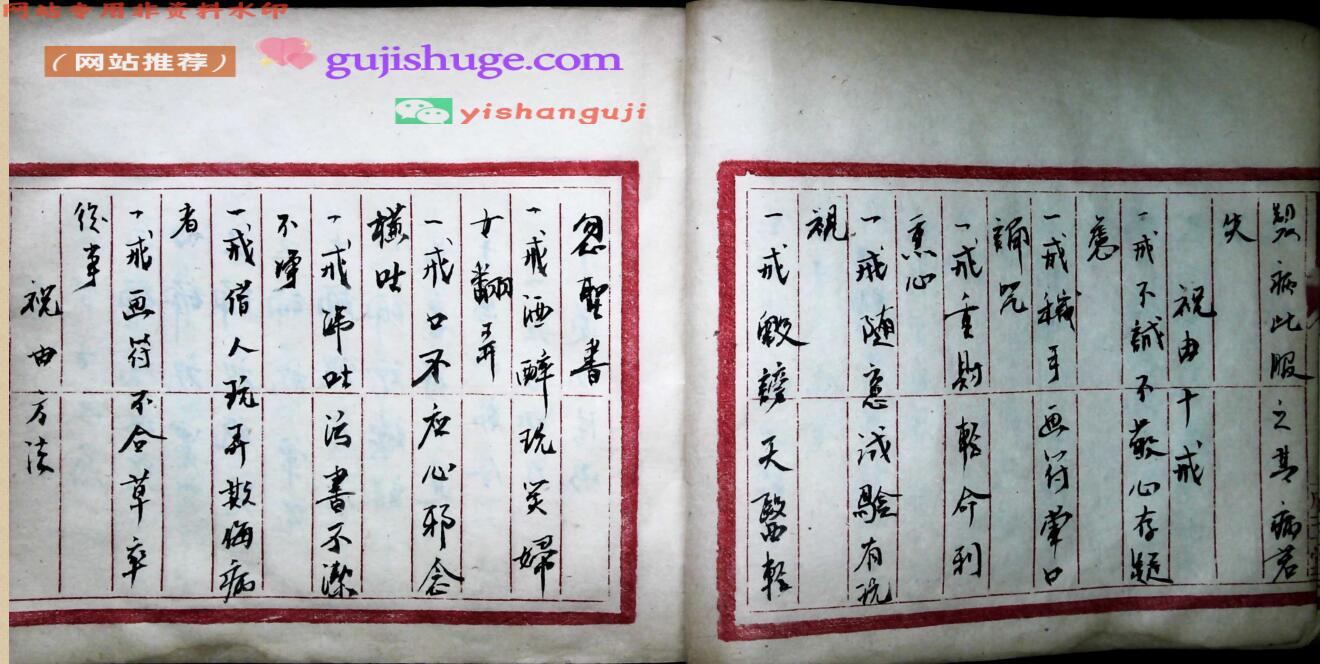 网站专用非资料水印
（网站推荐）
gujishuge.com
yishanguji
病此服之其病若
失
祝由十戒
一戒不誠不敬心存疑
一戒穢手画符葷口
誦咒
一戒重財輕命利
熏心
一戒随意试驗有玩
視
一戒毀謗天醫輕
忽聖書
一戒酒醉玩笑婦
女翻弄
一戒口不应心邪念
横吐
一戒涕吐污書不潔
不净
一戒借人玩弄欺侮病
者
一戒画符不合草率
從事
祝由方法